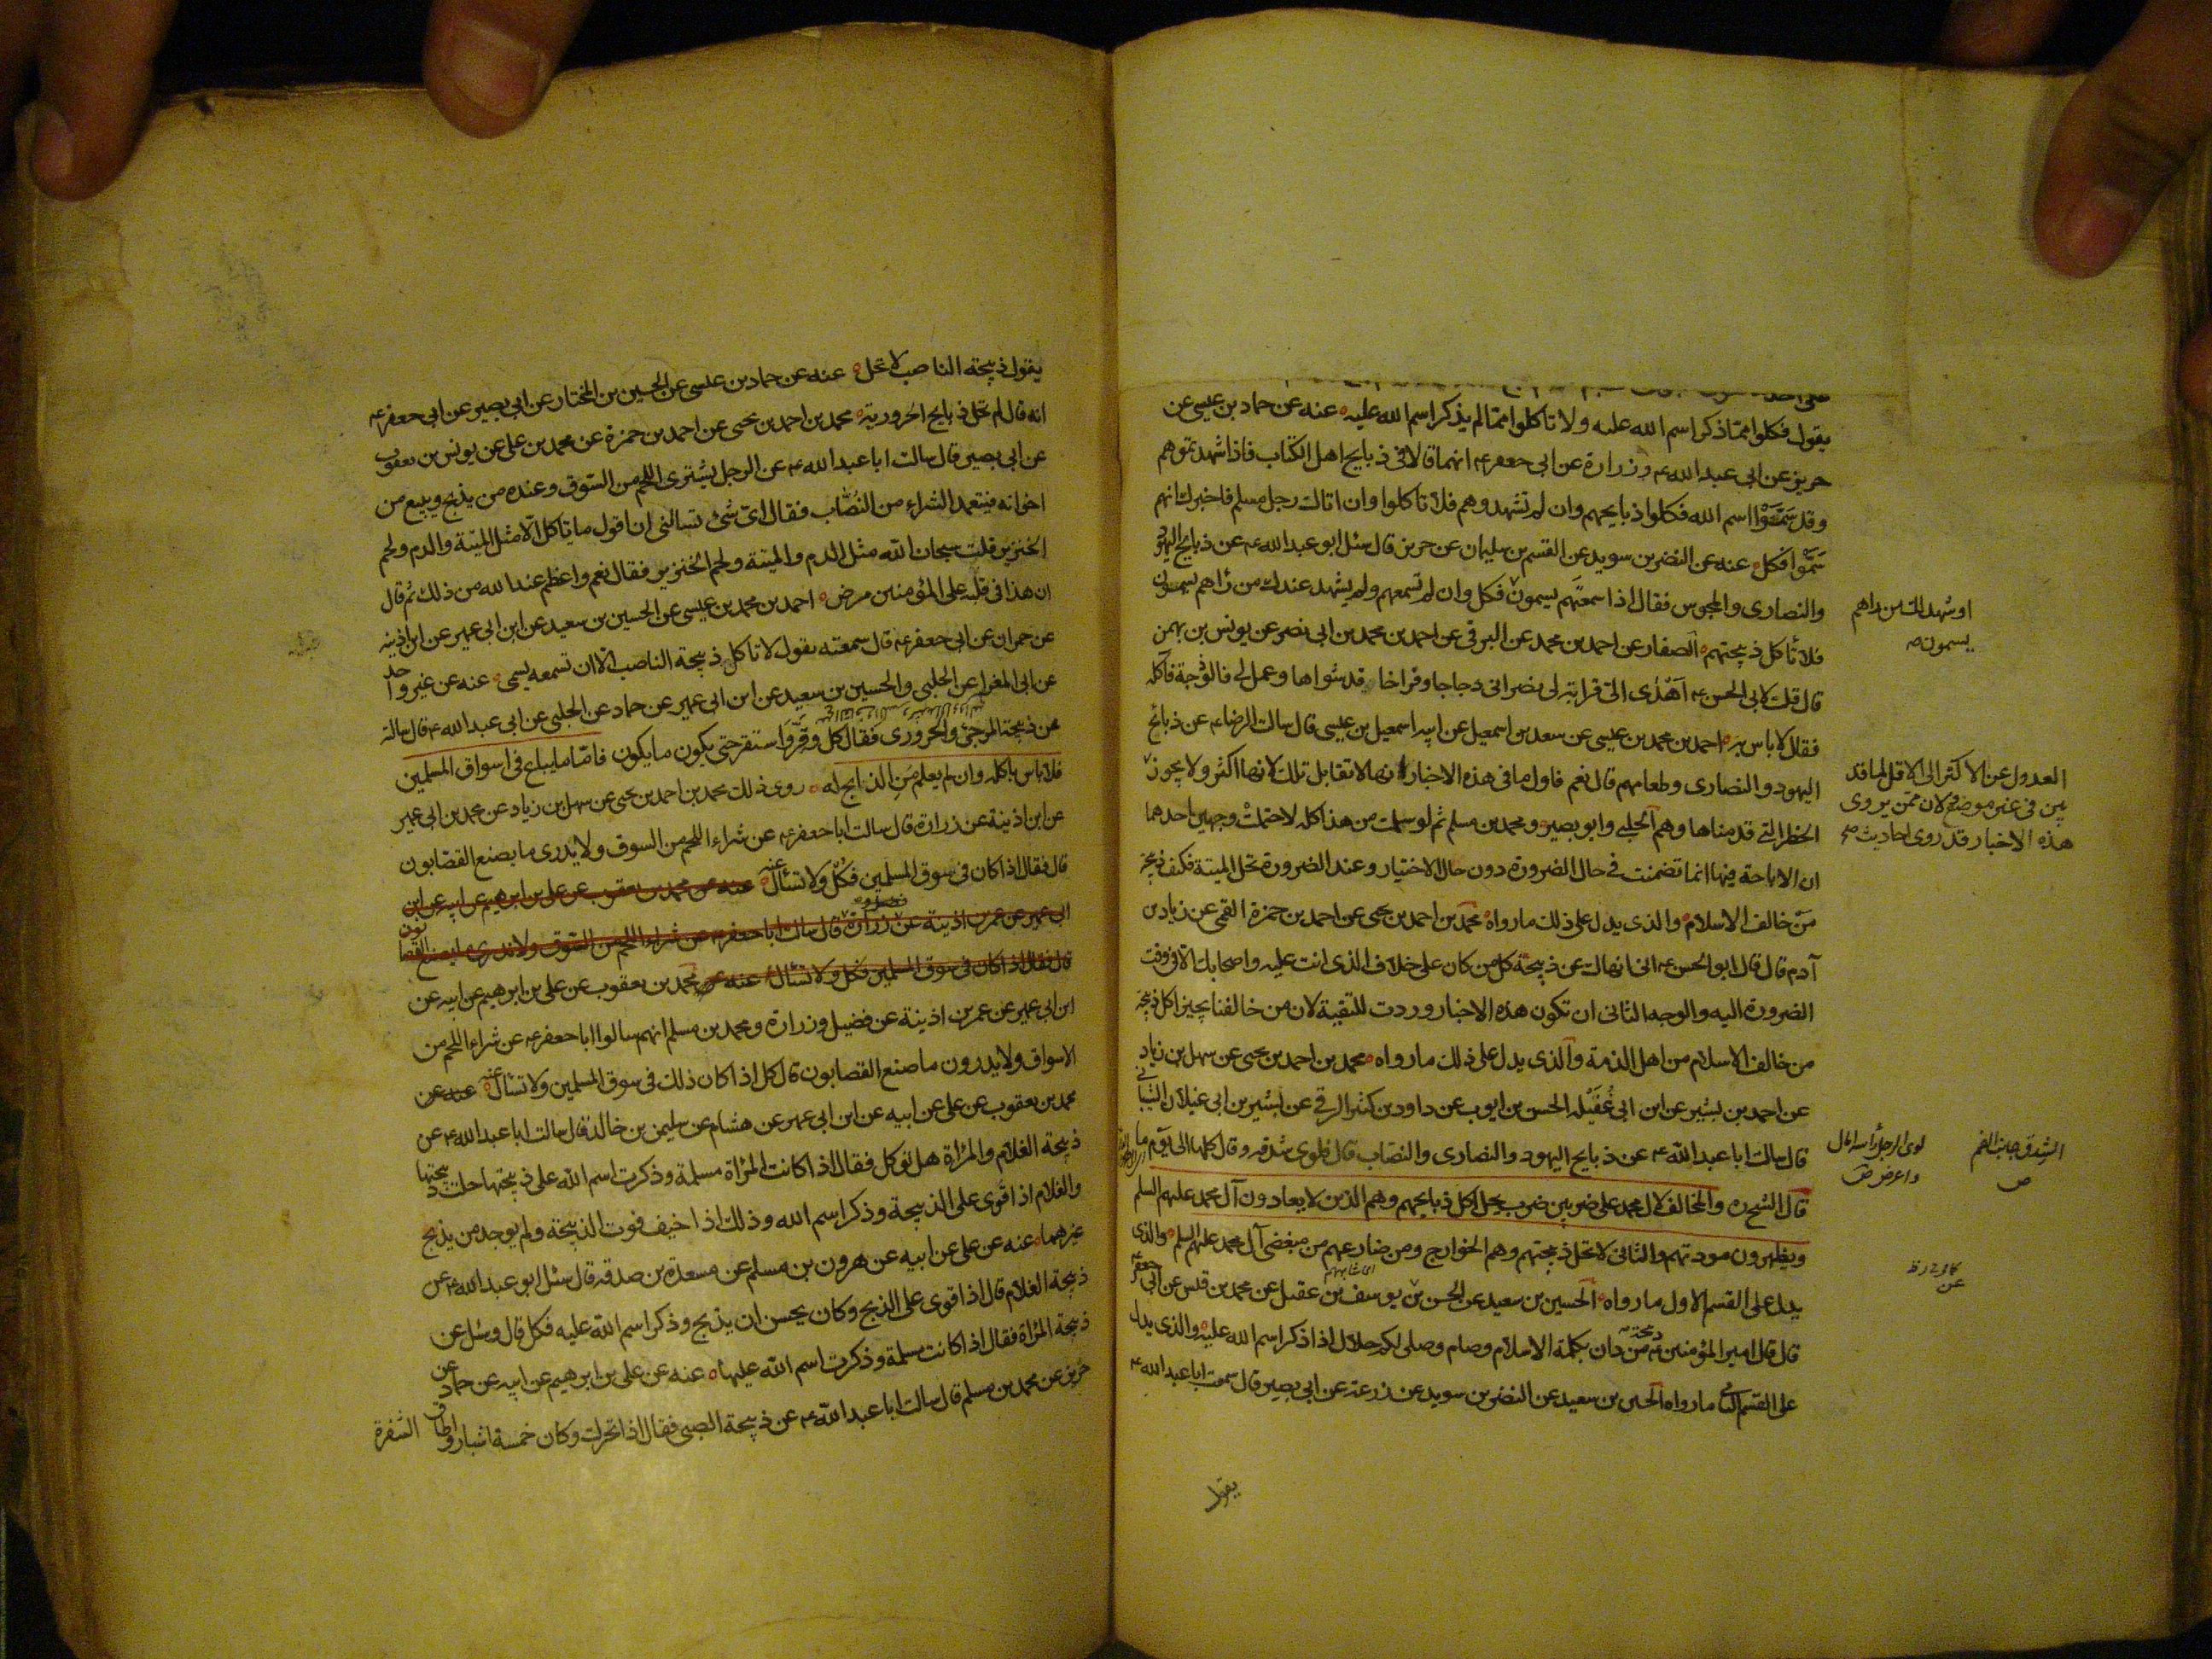 يقول فكلوا مما ذكر اسم الله عليه ولا تاكلوا مما لم يذكر اسم الله عليه عنه عن حماد بن عيسى عن
حريز عن ابي عبد الله ع وزرارة عن ابي جعفر ع انهما قالا في ذبايح اهل الكتاب فاذا شهدتموهم
وقد سموا اسم الله فكلوا ذبايحهم وان لم تشهدوهم فلا تاكلوا وان اتاك رجل مسلم فاخبرك انهم
سموا فكل عنه عن النضر بن سويد عن القسم بن سليمان عن حريز قال سئل ابو عبد الله ع عن ذبايح اليهود
والنصارى والمجوس فقال اذا سمعتهم يسمون فكل وان لم تسمعهم ولم يشهد عندك من راهم يسمون
فلا تاكل ذبيحتهم الصفار عن احمد بن محمد عن البرقي عن احمد بن محمد بن ابي نصر عن يونس بن بهمن
قال قلت لابي الحسن ع اهدى الي قرابة لي نصراني دجاجا وفراخا قد شواها وعمل لي فالوذجة فآكله
فقال لا باس به احمد بن محمد بن عيسى عن سعد بن اسمعيل عن ابيه اسمعيل بن عيسى قال سالت الرضا ع عن ذبائح
اليهود والنصارى وطعامهم قال نعم فاول ما في هذه الاخبار انها لا تقابل تلك لانها اكثر ولا يجوز
الحظر التي قدمناها وهم الحلبي وابو بصير ومحمد بن مسلم ثم لو سلمت من هذا كله لاحتملت وجهين احدهما
ان الاباحة فيها انما تضمنت في حال الضرورة دون حال الاختيار وعند الضرورة تحل الميتة فكيف ذبيحة
من خالف الاسلام والذي يدل على ذلك ما رواه محمد بن احمد بن يحيى عن احمد بن حمزة القمي عن زيد بن
آدم قال قال ابو الحسن ع اني انهاك عن ذبيحة كل من كان على خلاف الذي انت عليه واصحابك الا في وقت
الضرورة اليه والوجه الثاني ان تكون هذه الاخبار وردت للتقية لان من خالفنا يجيز اكل ذبيحة
من خالف الاسلام من اهل الذمة والذي يدل على ذلك ما رواه محمد بن احمد بن يحيى عن سهل بن زياد
عن احمد بن بشير عن ابن ابي عقيلة الحسن بن ايوب عن داود بن كثير الرقي عن بشير بن ابي غيلان الشيباني
قال سالت ابا عبد الله ع عن ذبايح اليهود والنصارى والنصاب قال فلوى شدقه وقال كلها الى يوم ما
قال الشيخ ره والمخالف لآل محمد على ضربين ضرب يحل اكل ذبايحهم وهم الذين لا يعادون آل محمد عليهم السلم
ويظهرون مودتهم والثاني لا تحل ذبيحتهم وهم الخوارج ومن ضارعهم من مبغضي آل محمد عليهم السلم والذي
يدل على القسم الاول ما رواه الحسين بن سعيد عن الحسن بن يوسف بن عقيل عن محمد بن قيس عن ابي جعفر ع
قال قال امير المؤمنين ع ذبيحة من دان بكلمة الاسلام وصام وصلى لكم حلال اذا ذكر اسم الله عليه والذي يدل
على القسم الثاني ما رواه الحسين بن سعيد عن النضر بن سويد عن زرعة عن ابي بصير قال سمعت ابا عبد الله ع
يقول
او شهد لك من راهم
يسمون
العدول عن الاكثر الى الاقل لما قد
بين في غير موضع لان ممن يروى
هذه الاخبار قد روى احاديث
لوى الرجل راسه امال
واعرض ص
الشدق جانب الفم
ص
يقول ذبيحة الناصب لا تحل عنه عن حماد بن عيسى عن الحسين بن المختار عن ابي بصير عن ابي جعفر ع
انه قال لم تحل ذبايح الحرورية محمد بن احمد بن يحيى عن احمد بن حمزة عن محمد بن علي عن يونس بن يعقوب
عن ابي بصير قال سالت ابا عبد الله ع عن الرجل يشترى اللحم من السوق وعنده من يذبح ويبيع من
اخوانه فيتعمد الشراء من النصاب فقال اي شئ تسالني ان اقول ما ياكل الا مثل الميتة والدم ولحم
الخنزير قلت سبحان الله مثل الدم والميتة ولحم الخنزير فقال نعم واعظم عند الله من ذلك ثم قال
ان هذا في قلبه على المؤمنين مرض احمد بن محمد بن عيسى عن الحسين بن سعيد عن ابن ابي عمير عن ابن اذينه
عن حمران عن ابي جعفر ع قال سمعته يقول لا تاكل ذبيحة الناصب الا ان تسمعه يسمي عنه عن غير واحد
عن ابي المغرا عن الحلبي والحسين بن سعيد عن ابن ابي عمير عن حماد عن الحلبي عن ابي عبد الله ع قال سالته
عن ذبيحة المرجئ والحروري فقال كل وقر واستقر حتى يكون ما يكون فاما ما يباع في اسواق المسلمين
فلا باس باكله وان لم يعلم من الذابح له روى ذلك محمد بن احمد بن يحيى عن سهل بن زياد عن محمد بن ابي عمير
عن ابن اذينة عن زرارة قال سالت ابا جعفر ع عن شراء اللحم من السوق ولا يدرى ما يصنع القصابون
قال فقال اذا كان في سوق المسلمين فكل ولا تسأل عنه عنه عن محمد بن يعقوب عن علي بن ابرهيم عن ابيه عن ابن
ابي عمير عن عمر بن اذينة عن زرارة قال سالت ابا جعفر ع عن شراء اللحم من السوق ولا ندري ما يصنع القصابون
قال فقال اذا كان في سوق المسلمين فكل ولا تسأل عنه عن محمد بن يعقوب عن علي بن ابرهيم عن ابيه عن
ابن ابي عمير عن عمر بن اذينة عن فضيل وزرارة ومحمد بن مسلم انهم سالوا ابا جعفر ع عن شراء اللحم من
الاسواق ولا يدرون ما صنع القصابون قال كل اذا كان ذلك في سوق المسلمين ولا تسأل عنه عنه عن
محمد بن يعقوب عن علي عن ابيه عن ابن ابي عمير عن هشام عن سليمن بن خالد قال سالت ابا عبد الله ع عن
ذبيحة الغلام والمرأة هل تؤكل فقال اذا كانت المرأة مسلمة وذكرت اسم الله على ذبيحتها حلت ذبيحتها
والغلام اذا قوى على الذبيحة وذكر اسم الله وذلك اذا خيف فوت الذبيحة ولم يوجد من يذبح
غيرهما عنه عن علي عن ابيه عن هرون بن مسلم عن مسعدة بن صدقه قال سئل ابو عبد الله ع عن
ذبيحة الغلام قال اذا قوى على الذبح وكان يحسن ان يذبح وذكر اسم الله عليه فكل قال وسئل عن
ذبيحة المرأة فقال اذا كانت مسلمة وذكرت اسم الله عليها عنه عن علي بن ابرهيم عن ابيه عن حماد عن
حريز عن محمد بن مسلم قال سالت ابا عبد الله ع عن ذبيحة الصبي فقال اذا تحرك وكان خمسة اشبار واطاق الشفرة